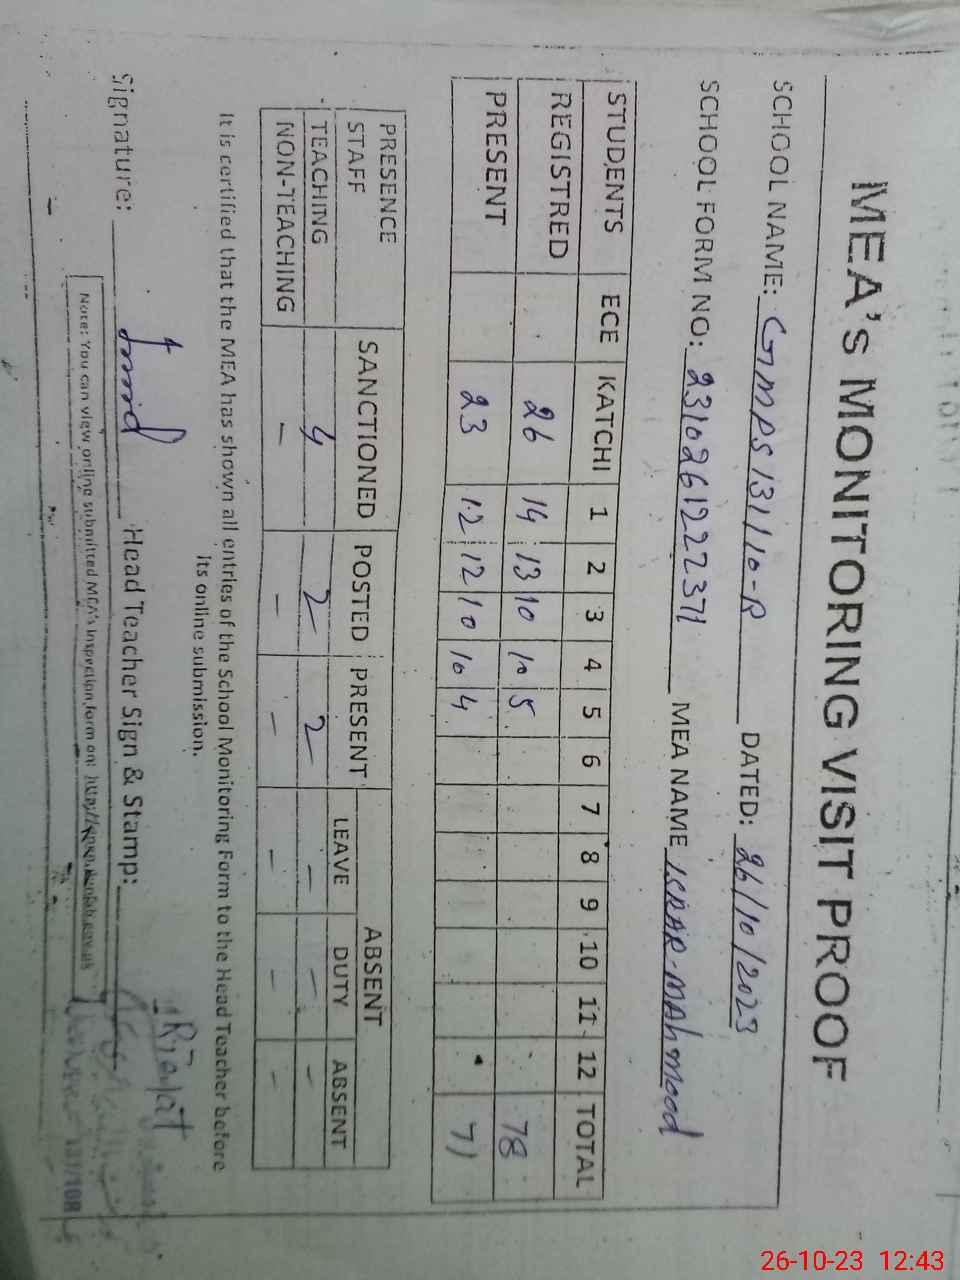 MEA's MONITORING VISIT PROOF
SCHOOL NAME: GMPS 131/10-R DATED: 26/10/2023
SCHOOL FORM NO: 23102612 22371 MEA NAME ISRAR MAHmood
STUDENTS ECE KATCHI 1 2 3 4 5 6 7 8 9 10 11 12 TOTAL
REGISTRED 26 14 13 10 10 5 78
PRESENT 23 12 12 10 10 4 71
PRESENCE STAFF SANCTIONED POSTED PRESENT ABSENT
LEAVE DUTY ABSENT
TEACHING 4 2 2 - - -
NON-TEACHING - - - - - -
It is certified that the MEA has shown all entries of the School Monitoring Form to the Head Teacher before
its online submission.
Signature: Head Teacher Sign & Stamp: Riayat
Note: You can view online submitted MEA's Inspection form on:
131/10R
26-10-23 12:43